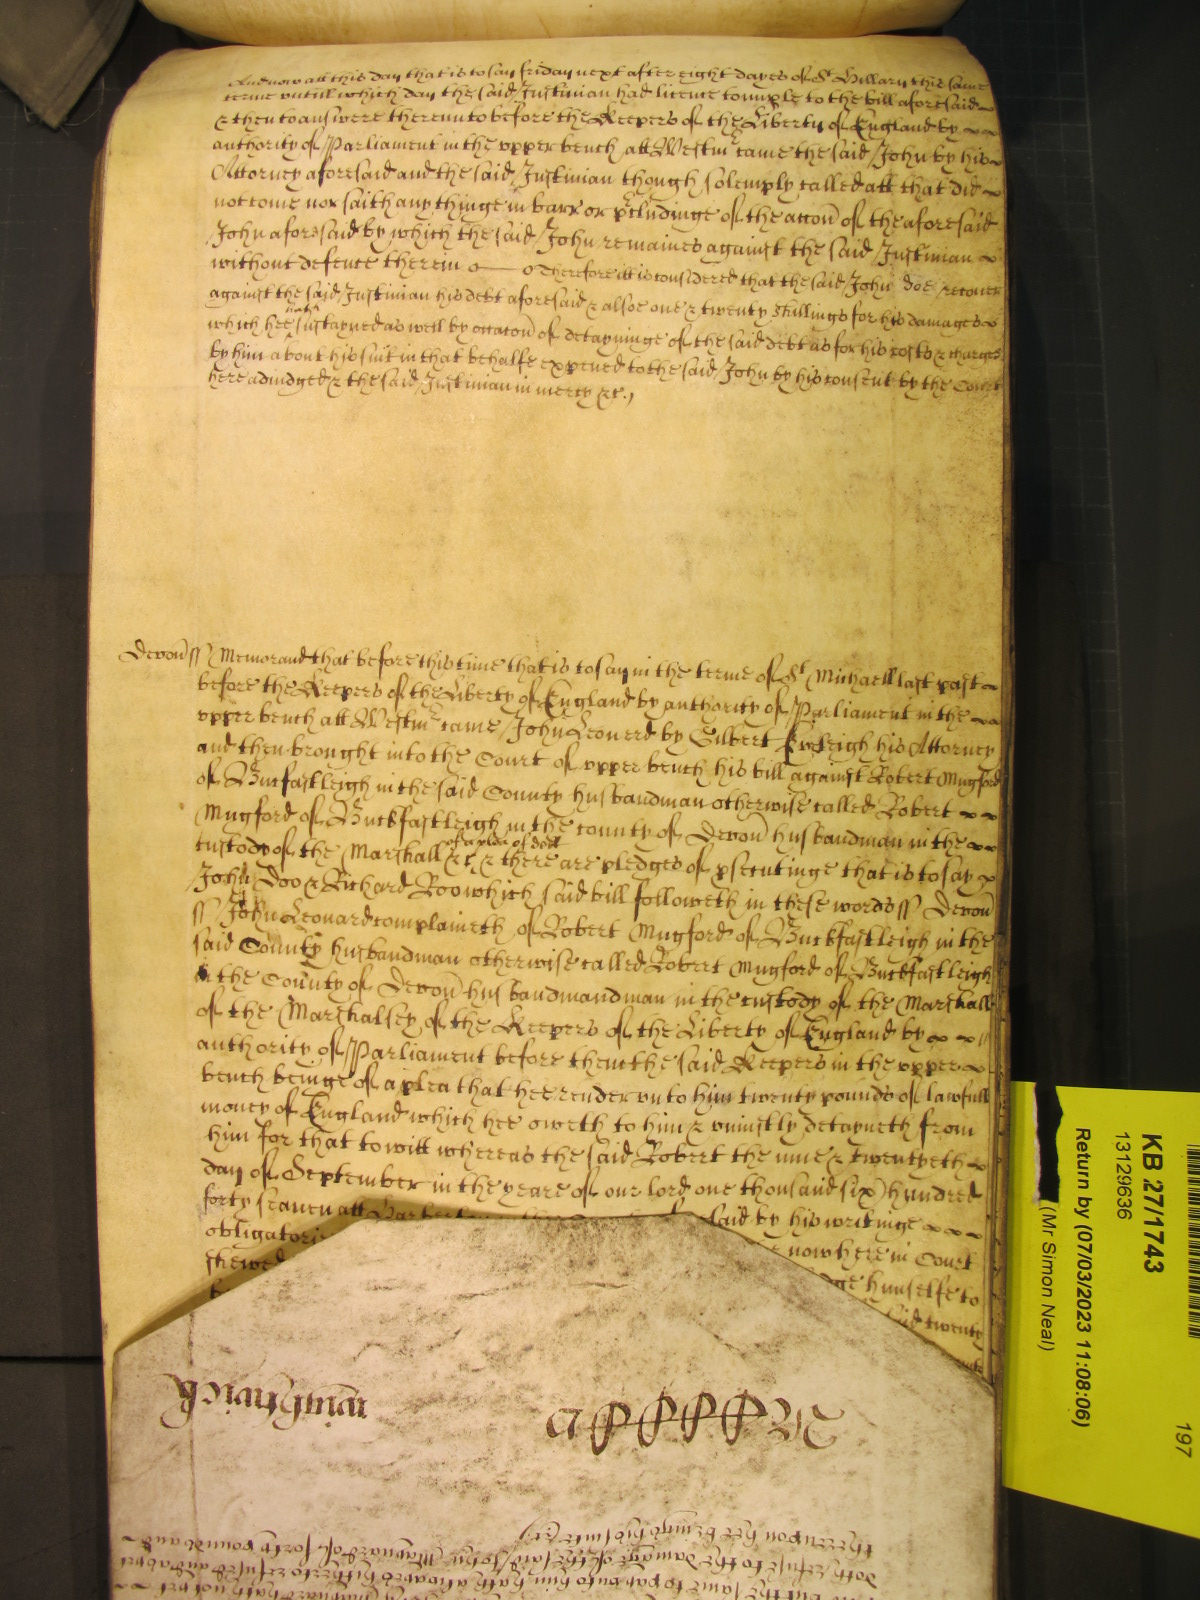 And now att this day that is to say friday next after eight dayes of St Hillary this same
terme untill which day the said Justinian had licence to imple to the bill aforesaid
& then to answere thereunto before the Keepers of the Liberty of England by
authority of Parliament in the upper bench att Westmr came the said John by his
Attorney aforesaid and the said Justinian though solemply called att that did
not come nor saith any thinge in barr or pcludinge of the accon of the aforesaid
John aforesaid by which the said John remaines against the said Justinian
without defence therein Therefore itt is considered that the said John doe recover
against the said Justinian his debt aforesaid & alsoe one & twenty shillings for his damages
which hee hath sustayned as well by occacon of detayninge of the said debt as for his costs & charges
by him about his suit in that behalfe expened to the said John by his consent by the Court
here adiudged & the said Justinian in mercy &c.
Devon ss Memorand that before this time that is to say in the terme of St Michaell last past
before the Keepers of the Liberty of England by authority of Parliament in the
upper bench att Westmr came John Leonerd by Gilbert Eveleigh his Attorney
and then brought into the Court of upper bench his bill against Robert Mugford
of Buckfastleigh in the said County husbandman otherwise called Robert
Mugford of Buckfastleigh in the county of Devon husbandman in the
custody of the Marshall &c of a plea of debt & there are pledges of psecutinge that is to say
John Doo & Richard Roo which said bill followeth in these words ss Devon
ss John Leonard complaineth of Robert Mugford of Buckfastleigh in the
said County husbandman otherwise called Robert Mugford of Buckfastleigh
in the County of Devon husbandmandman in the custody of the Marshall
of the Marshalsey of the Keepers of the Liberty of England by
authority of Parliament before them the said Keepers in the upper
bench beinge of a plea that hee render unto him twenty pounds of lawfull
money of England which hee oweth to him & uniustly detayneth from
him for that to witt whereas the said Robert the nine & twentyeth
day of September in the yeare of our lord one thousand six hundred
forty seaven att said by his writinge
obligatori now here in Court
shewed himselfe to
said twenty
KB 27/1743
13129636
Return by (07/03/2023 11:08:06)
(Mr Simon Neal)
197
thereupon hee brings his suite &c
doth refuse to the damage of the said John Maynard of forty pounds and